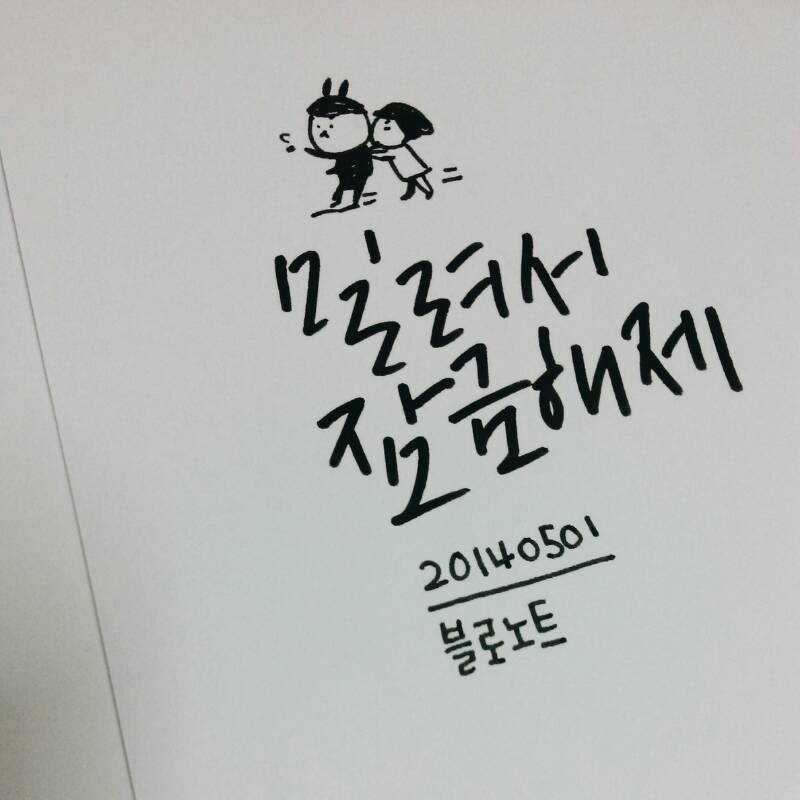 밀려서
잠금해제
20140501
블로노트